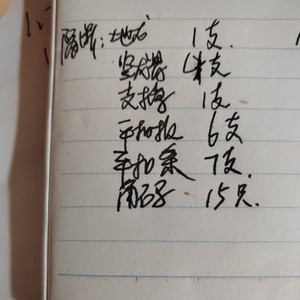 隔断：地龙 1支.
竖档 4支
支撑 1支
平扣板 6支
平扣条 7支.
角码子 15只.